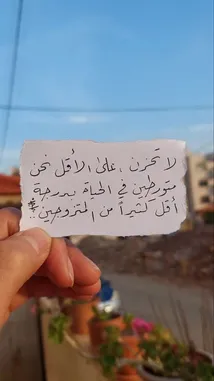 لا تحزن ، على الأقل نحن
متورطين في الحياة بدرجة
أقل كثيراً من المتزوجين !!